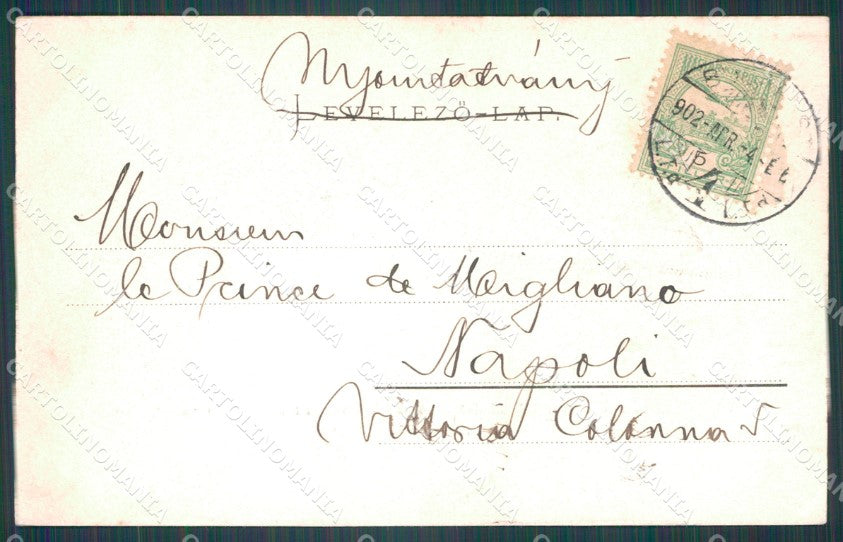 Nyomtatvány
LEVELEZŐ-LAP.
902 APR. 4
Monsieur
le Prince de Migliano
Napoli
Vittoria Colonna 5
CARTOLINOMANIA